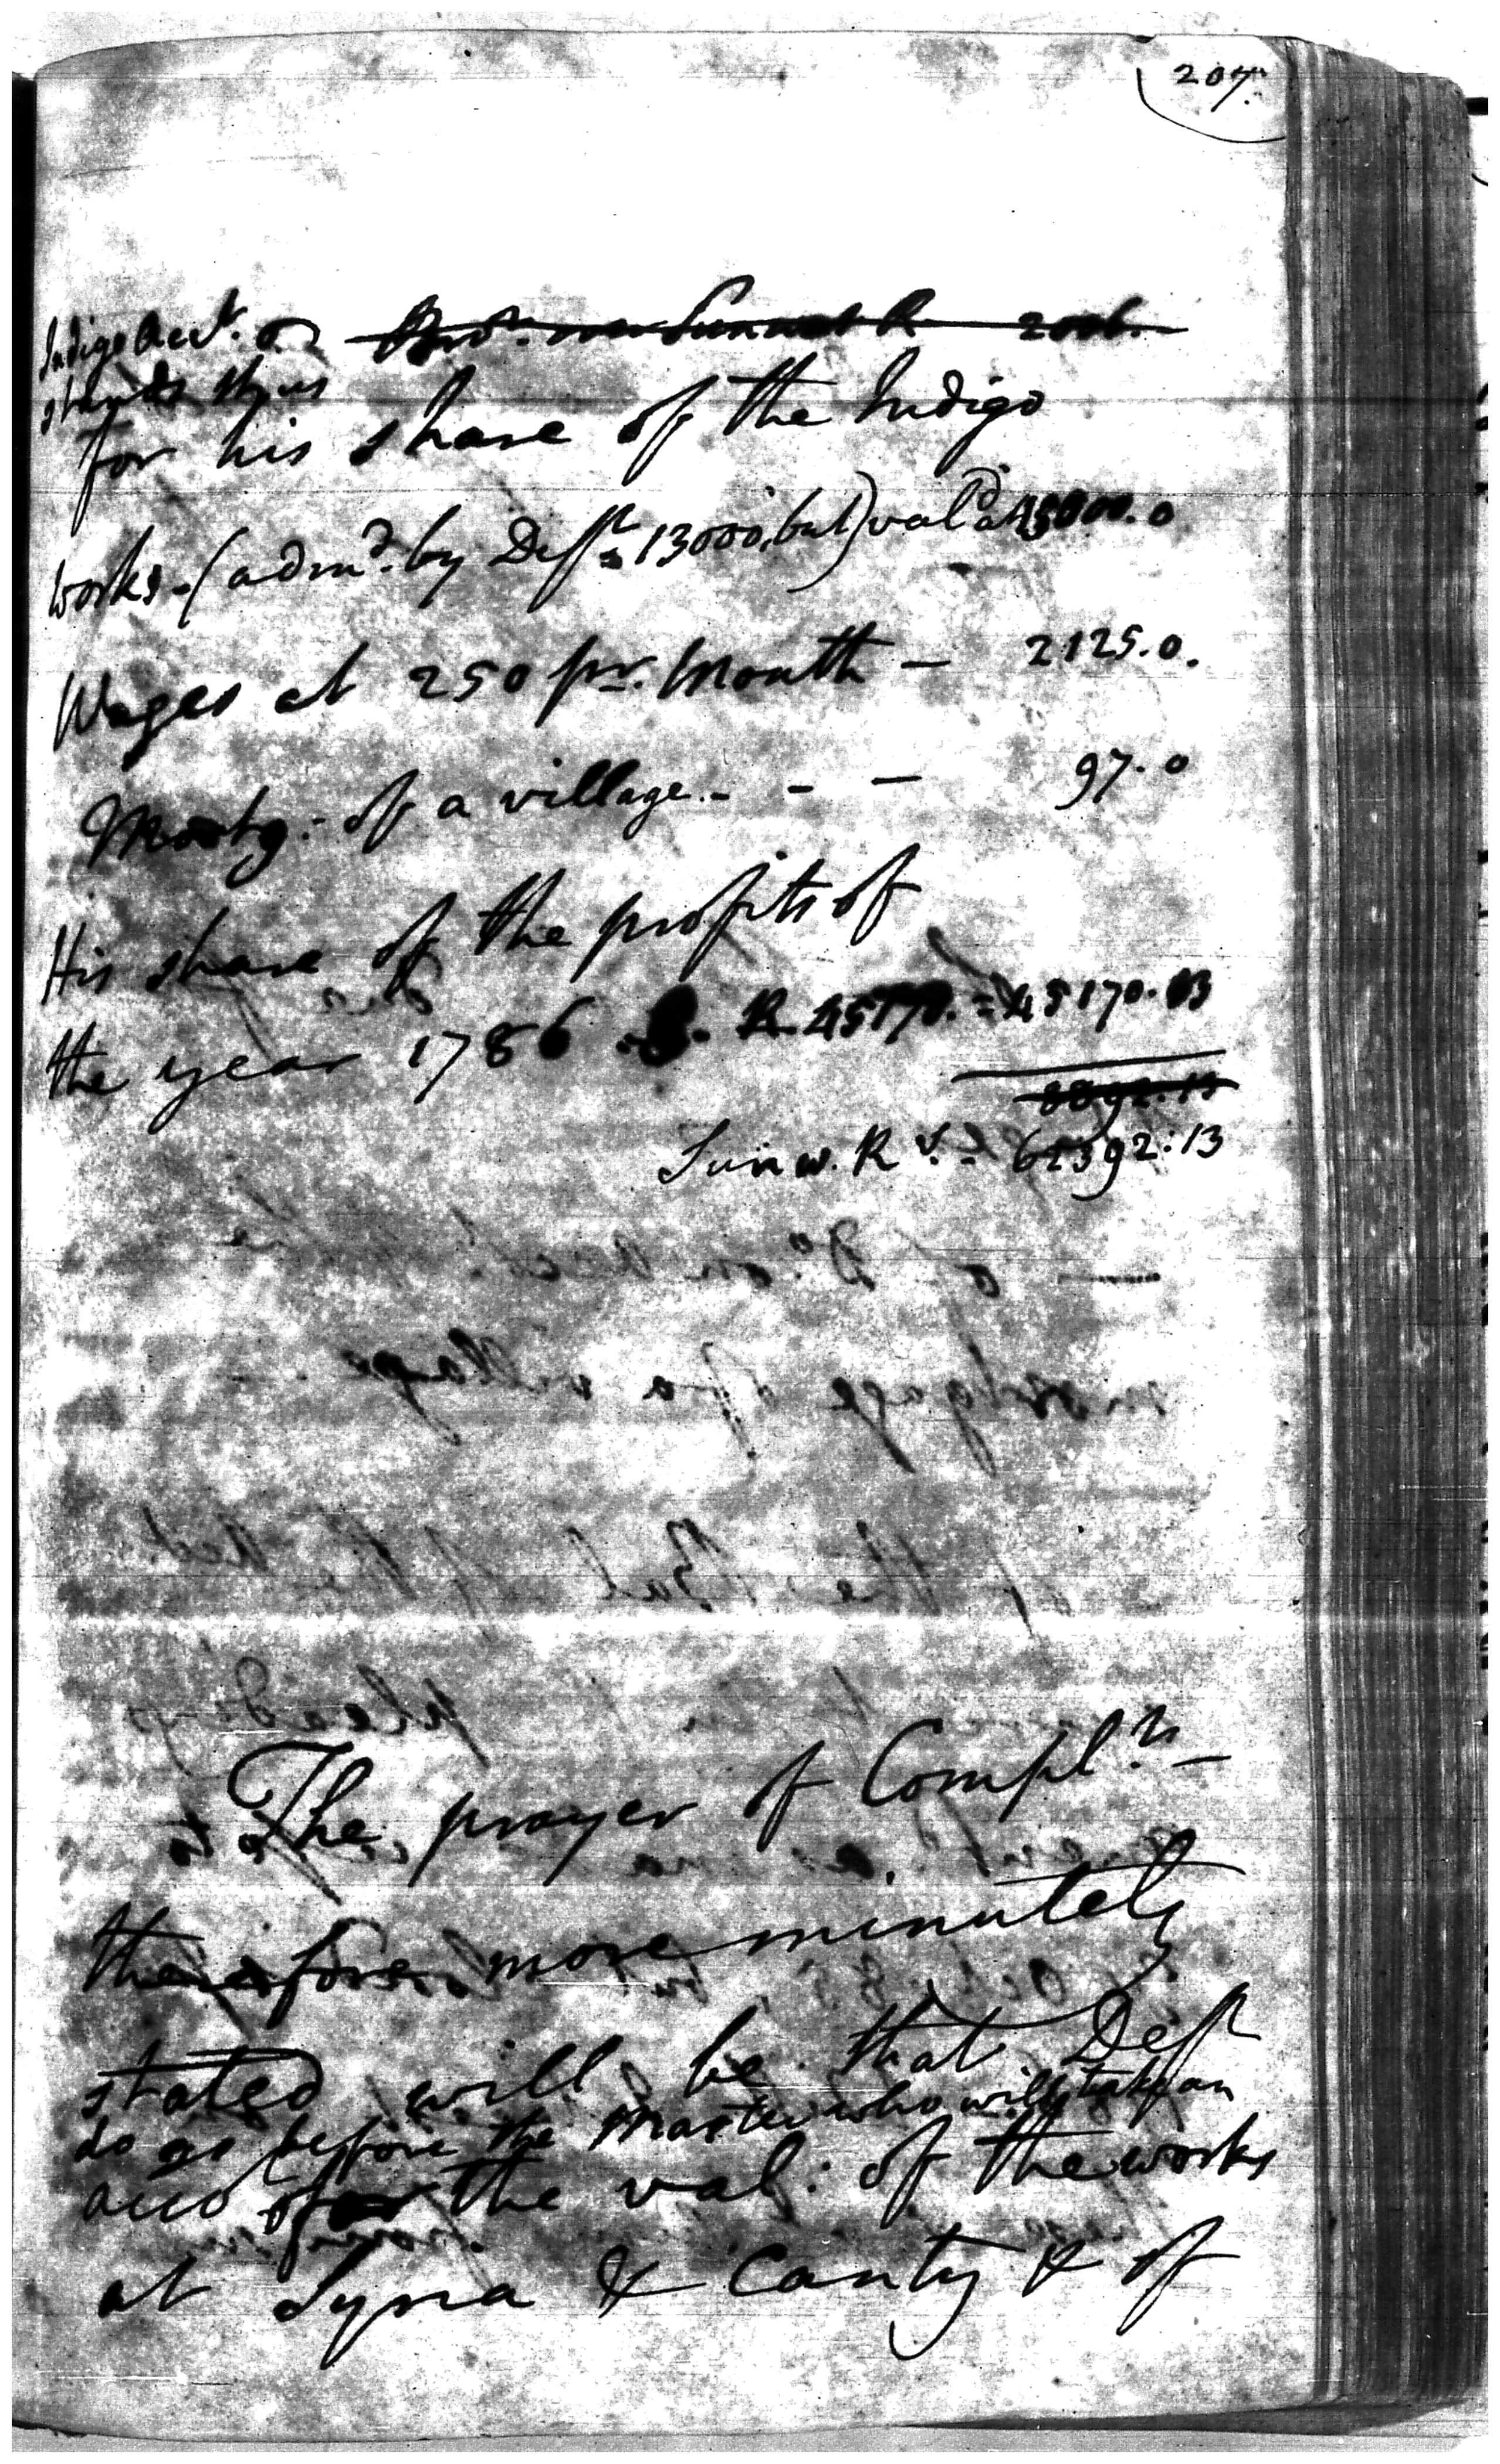 207.
Indigo Acct.
stands thus
for his share of the Indigo
works - (adm.d by Deft 13000, but) val.d at 15000.0
Wages at 250 pr. Month - 2125.0.
Mortg: of a village. - - - 97.0
His share of the profits of
the year 1786 R 45170. = 45170.13
8892.13
Sunw. Rs. - 62392:13
The prayer of Compl.ts -
therefore more minutely
stated will be that Deft
do go before the Master who will take an
acco.t of the val: of the works
at Syna & Canty & of